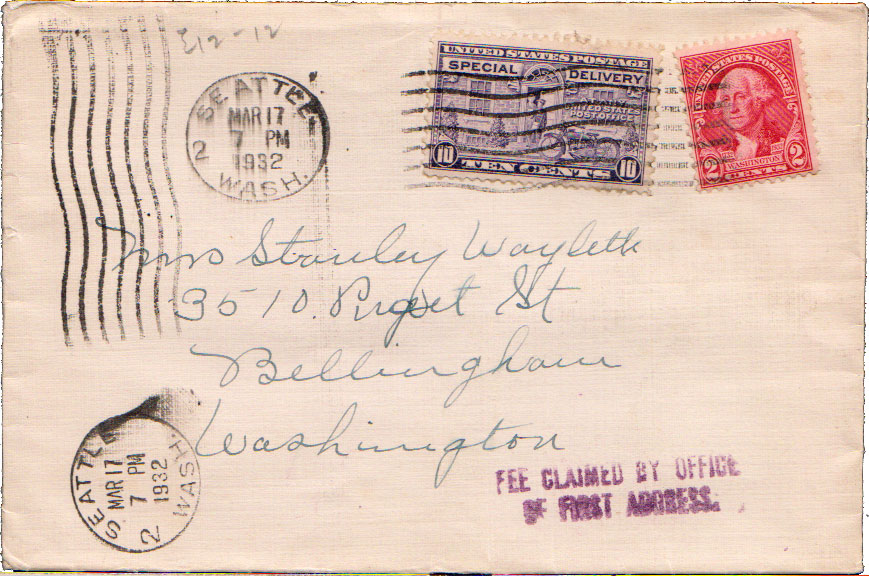 E12-12
SEATTLE
MAR 17
7 PM
1932
2
WASH.
UNITED STATES POSTAGE
SPECIAL DELIVERY
UNITED STATES
POST OFFICE
10 TEN CENTS 10
UNITED STATES POSTAGE
WASHINGTON
2 CENTS 2
Mrs Stanley Waylett
3510 Puget St
Bellingham
Washington
SEATTLE
MAR 17
7 PM
1932
2
WASH.
FEE CLAIMED BY OFFICE
OF FIRST ADDRESS.